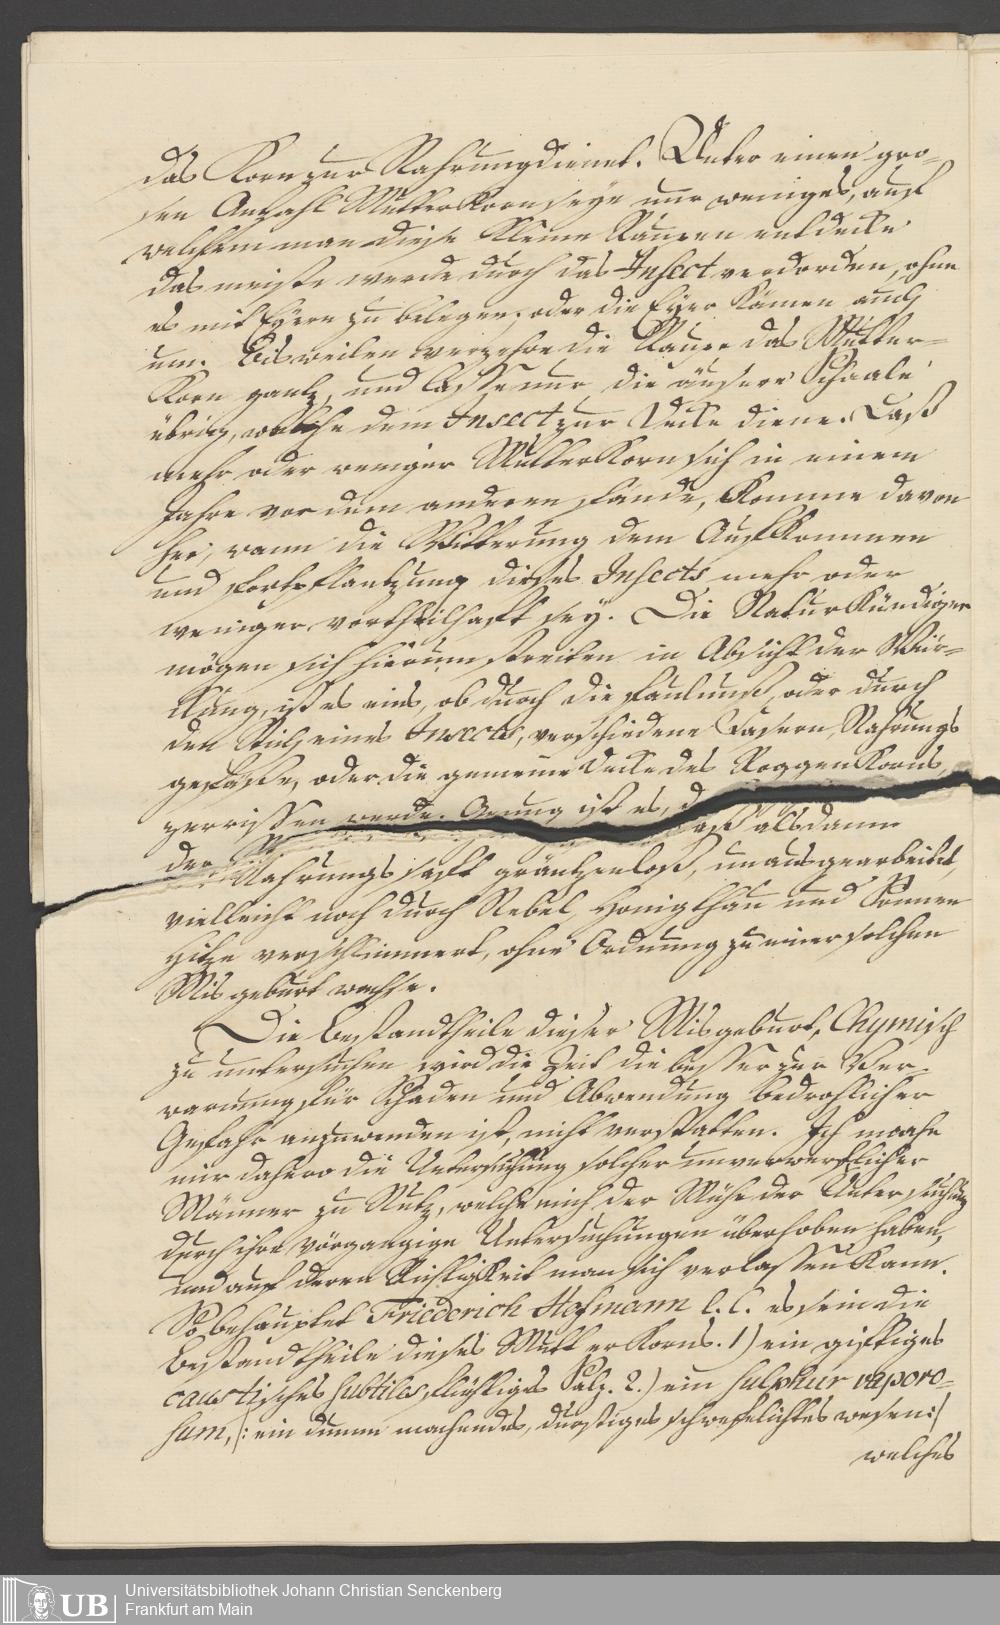 das Korn zur Nahrung dienet. Unter einen gro-
sen Anzahl Mutterkorn seye nur weniges, auf
welchem man diese kleine Raupen entdecke
das meiste werde durch das Insect verdorben, ohne
es mit Eyern zu belegen, oder die Eyer kämen auch
um. Bisweilen verzehre die Raupe das Mutter-
Korn gantz, und lasse nur die äusere Schaale
übrig, welche dem Insect zur Decke diene. Daß
mehr oder weniger Mutterkorn sich in einem
Jahre vor dem anderen fände, komme davon
her, wann die Witterung dem Aufkommen
und Fortpflantzung dieses Insects mehr oder
weniger vortheilhaft sey. Die Naturkündiger
mögen sich hierum streiten in Absicht der Wür-
kung, ist es eins, ob durch die Fäulniß, oder durch
den Stich eines Insects, verschiedene Fasern, Nahrungs
gefäße, oder die gemeine Decke des Roggenkorns,
zerrissen werde. Genug ist es, daß alsdann
der Nahrungssaft gräntzenloß, unausgearbeitet,
vielleicht noch durch Nebel, Honigthau und Sonnen
hitze verschlimmert, ohne Ordnung zu einer solchen
Misgeburt wachse.
Die Bestandtheile dieser Misgeburt, Chymisch
zu untersuchen wird die Zeit die besser zur Ver-
warnung für Schaden und Abwendung bedrohlicher
Gefahr anzuwenden ist, nicht verstatten. Ich mache
mir dahero die Untersuchung solcher unverwerflicher
Männer zu Nutz, welche mich der Mühe der Untersuchung
durch ihre vorgängige Untersuchungen überhoben haben,
und auf deren Richtigkeit man sich verlassen kann.
So behauptet Friederich Hofmann l. c. es sein die
Bestandtheile dieses Mutterkorns. 1) ein giftiges
caustisches subtiles, flüchtiges Salz. 2.) ein sulphur vaporo-
sum, /: ein dumm machendes, dunstiges schwefelichtes wesen :/
welches
Universitätsbibliothek Johann Christian Senckenberg
UB Frankfurt am Main